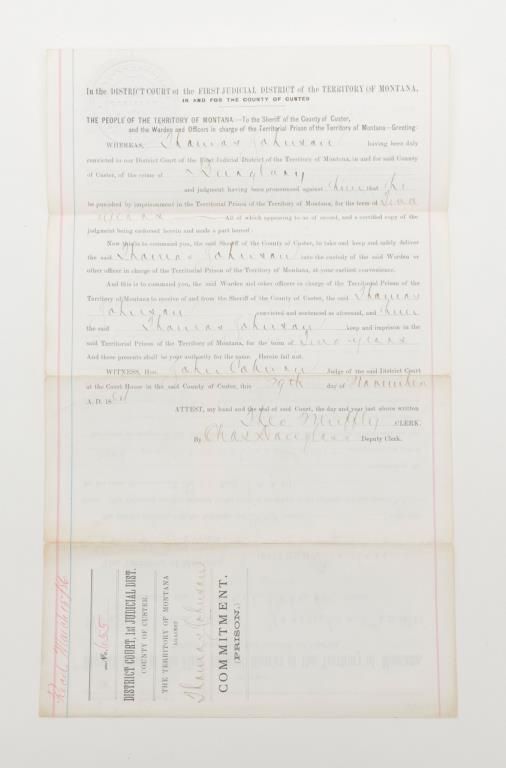 In the DISTRICT COURT of the FIRST JUDICIAL DISTRICT of the TERRITORY OF MONTANA,
IN AND FOR THE COUNTY OF CUSTER
THE PEOPLE OF THE TERRITORY OF MONTANA—To the Sheriff of the County of Custer,
and the Warden and Officers in charge of the Territorial Prison of the Territory of Montana—Greeting:
WHEREAS, Thomas Johnson having been duly
convicted in our District Court of the First Judicial District of the Territory of Montana, in and for said County
of Custer, of the crime of Burglary
and judgment having been pronounced against him that he
be punished by imprisonment in the Territorial Prison of the Territory of Montana, for the term of Two
years All of which appearing to us of record, and a certified copy of the
judgment being endorsed herein and made a part hereof:
Now this is to command you, the said Sheriff of the County of Custer, to take and keep and safely deliver
the said Thomas Johnson into the custody of the said Warden or
other officer in charge of the Territorial Prison of the Territory of Montana, at your earliest convenience.
And this is to command you, the said Warden and other officers in charge of the Territorial Prison of the
Territory of Montana to receive of and from the Sheriff of the County of Custer, the said Thomas
Johnson convicted and sentenced as aforesaid, and him
the said Thomas Johnson keep and imprison in the
said Territorial Prison of the Territory of Montana, for the term of Two years
And these presents shall be your authority for the same. Herein fail not.
WITNESS, Hon. John Judge of the said District Court
at the Court House in the said County of Custer, this 29th day of November
A. D. 18
ATTEST, my hand and the seal of said Court, the day and year last above written
Theo Muffly CLERK.
By Chas Deputy Clerk.
Recd. March 18
No. 655
DISTRICT COURT, 1st JUDICIAL DIST.
COUNTY OF CUSTER.
THE TERRITORY OF MONTANA
AGAINST
Thomas Johnson
COMMITMENT.
(PRISON.)